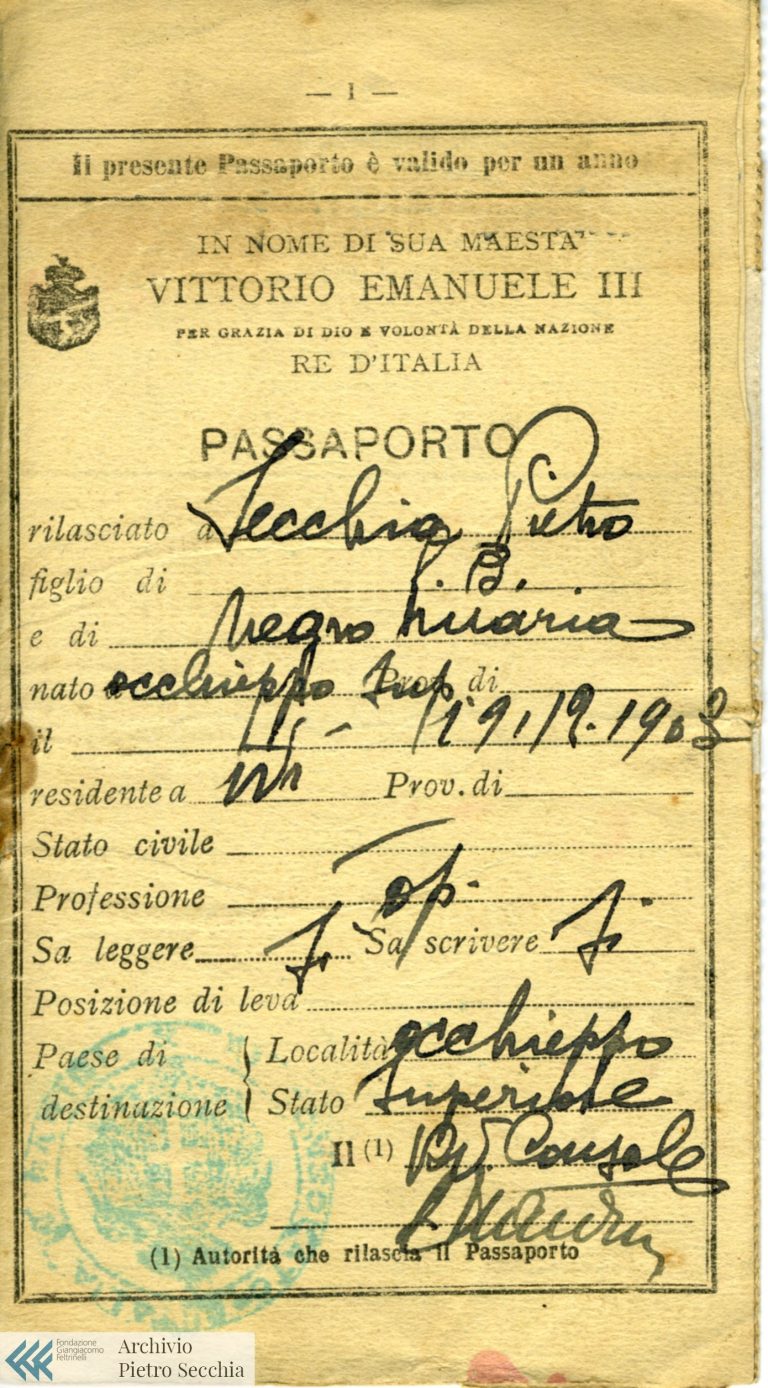 — 1 —
Il presente Passaporto è valido per un anno
IN NOME DI SUA MAESTA'
VITTORIO EMANUELE III
PER GRAZIA DI DIO E VOLONTÀ DELLA NAZIONE
RE D'ITALIA
PASSAPORTO
rilasciato a Secchia Pietro
figlio di B.
e di Negro Maria
nato a occhieppo Sup. Prov. di
il 19/12.1903
residente a Prov. di
Stato civile
Professione op.
Sa leggere si Sa scrivere si
Posizione di leva
Paese di destinazione { Località occhieppo
Stato Superiore
Il (1) Console
(1) Autorità che rilascia il Passaporto
Fondazione
Giangiacomo
Feltrinelli
Archivio
Pietro Secchia